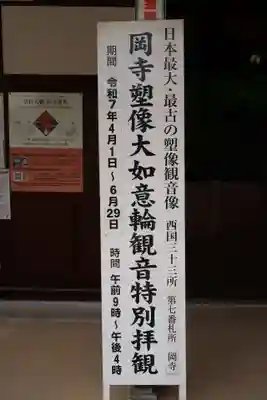 日本最大・最古の塑像観音像 西国三十三所 第七番札所 岡寺
岡寺塑像大如意輪観音特別拝観
期間 令和7年4月1日～6月29日 時間 午前9時～午後4時